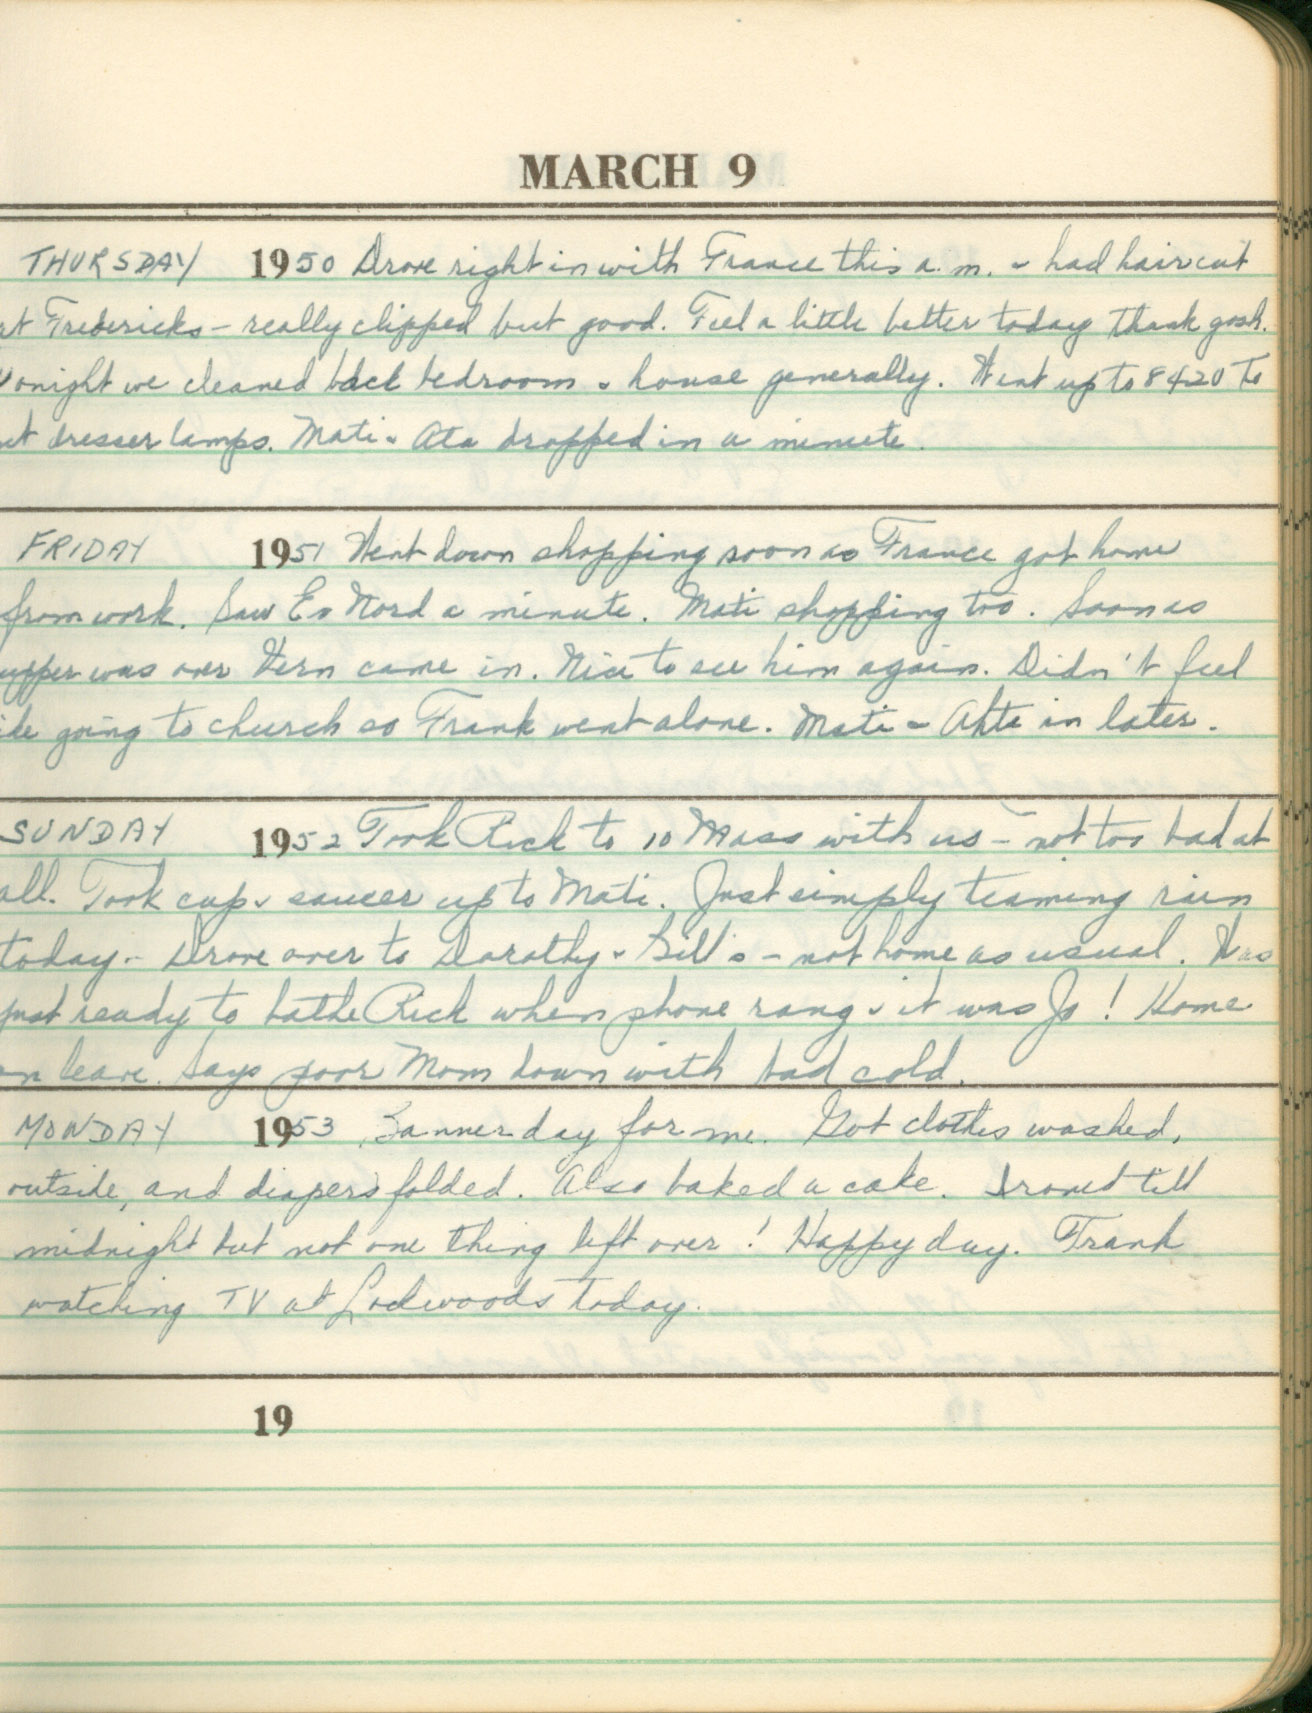 MARCH 9
THURSDAY 1950 Drove right in with France this a.m. & had haircut
at Fredericks - really clipped but good. Feel a little better today thank gosh.
Tonight we cleaned back bedroom & house generally. Went up to 8420 to
get dresser lamps. Mati & Ata dropped in a minute.
FRIDAY 1951 Went down shopping soon as France got home
from work. Saw Ev Nord a minute. Mati shopping too. Soon as
supper was over Vern came in. Nice to see him again. Didn't feel
like going to church so Frank went alone. Mati & Ahta in later.
SUNDAY 1952 Took Rick to 10 Mass with us - not too bad at
all. Took cup & saucer up to Mati. Just simply teaming rain
today - Drove over to Dorothy & Bill's - not home as usual. Was
just ready to bathe Rick when phone rang & it was Jo! Home
on leave. Says poor Mom down with bad cold.
MONDAY 1953 Banner day for me. Got clothes washed,
outside, and diapers folded. Also baked a cake. Ironed till
midnight but not one thing left over! Happy day. Frank
watching TV at Lockwoods today.
19